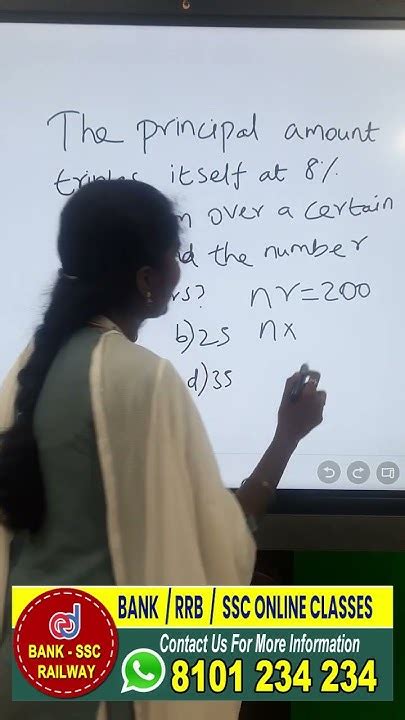 The principal amount
triples itself at 8%
over a certain
the number
nr=200
b)25 nx
d)35
BANK / RRB / SSC ONLINE CLASSES
Contact Us For More Information
8101 234 234
BANK - SSC
RAILWAY